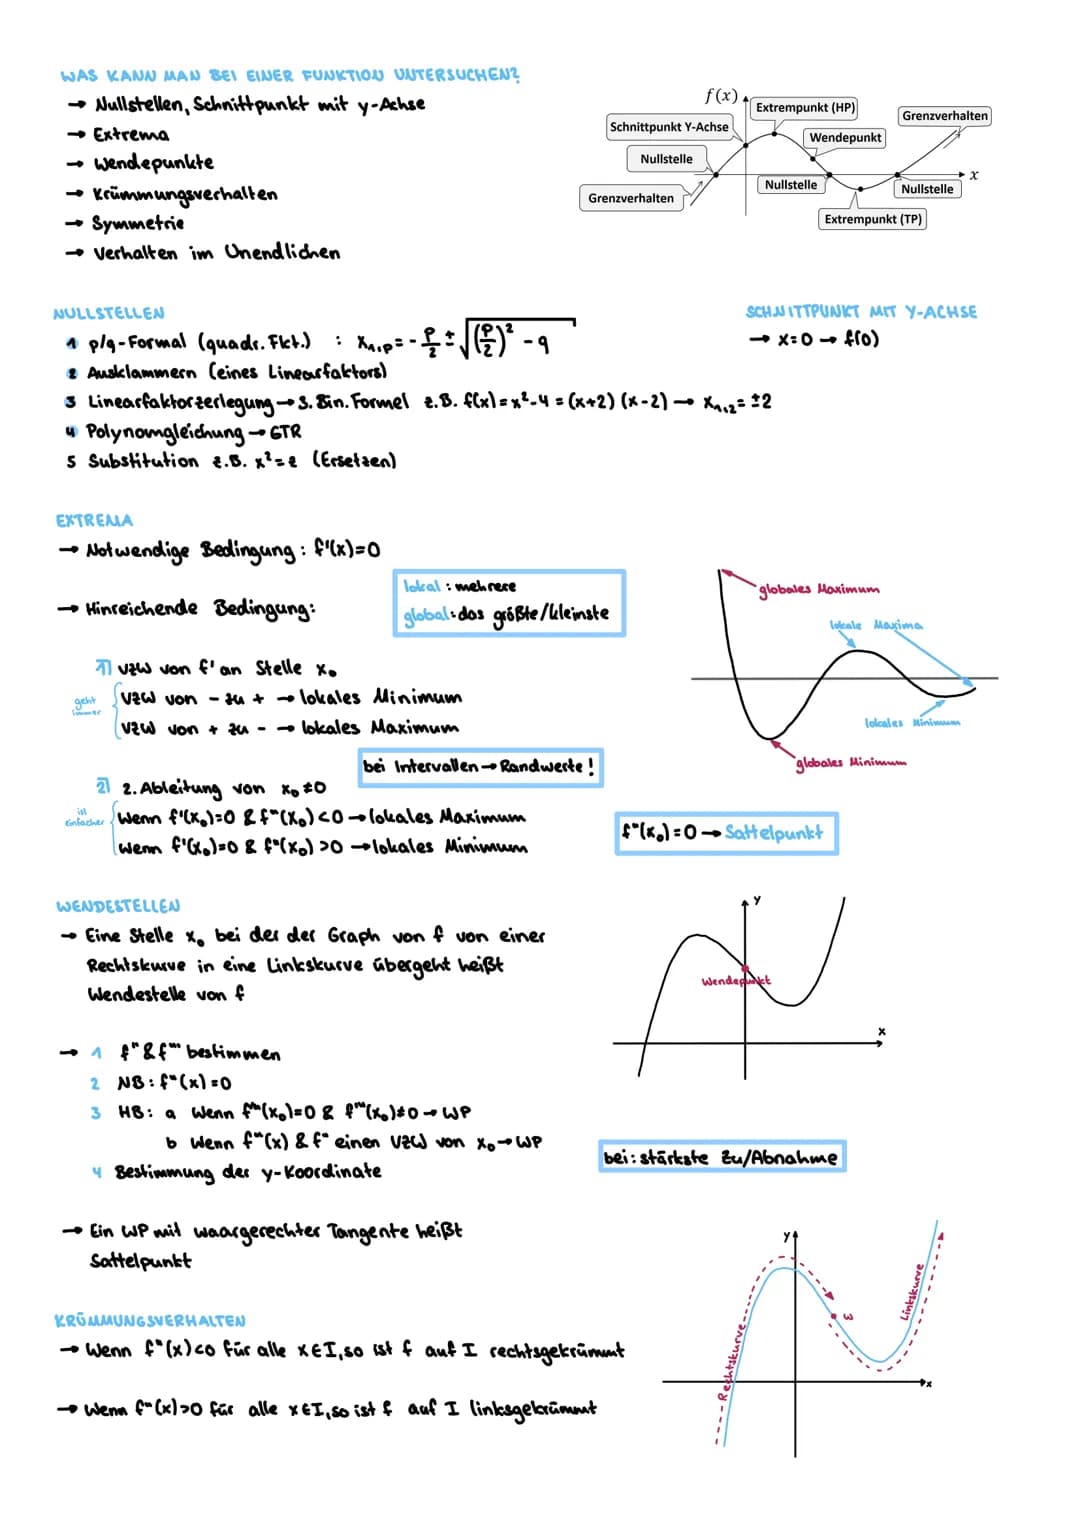 WAS KANN MAN BEI EINER FUNKTION UNTERSUCHEN?
→ Nullstellen, Schnittpunkt mit y-Achse
→ Extrema
→ Wendepunkte
→ Krümmungsverhalten
→ Symmetrie
→ Verhalten im Unendlichen
f(x)
Extrempunkt (HP)
Grenzverhalten
Schnittpunkt Y-Achse
Wendepunkt
Nullstelle
x
Nullstelle
Nullstelle
Grenzverhalten
Extrempunkt (TP)
NULLSTELLEN
1 p/q-Formal (quadr. Fkt.) : x₁,p = - p/2 ± √((p/2)² - q)
2 Ausklammern (eines Linearfaktors)
3 Linearfaktorzerlegung → 3. Bin. Formel z.B. f(x) = x²-4 = (x+2) (x-2) → x₁,₂ = ±2
4 Polynomgleichung → GTR
5 Substitution z.B. x² = z (Ersetzen)
SCHNITTPUNKT MIT Y-ACHSE
→ x=0 → f(0)
EXTREMA
→ Notwendige Bedingung: f'(x)=0
→ Hinreichende Bedingung:
lokal : mehrere
global: das größte/kleinste
1) VZW von f' an Stelle x₀
geht immer
VZW von - zu + → lokales Minimum
VZW von + zu - → lokales Maximum
bei Intervallen → Randwerte!
2) 2. Ableitung von x₀ ≠0
ist einfacher
Wenn f'(x₀)=0 & f"(x₀)<0 → lokales Maximum
wenn f'(x₀)=0 & f"(x₀) >0 → lokales Minimum
f"(x₀) = 0 → Sattelpunkt
globales Maximum
lokale Maxima
lokales Minimum
globales Minimum
WENDESTELLEN
→ Eine Stelle x₀ bei der der Graph von f von einer
Rechtskurve in eine Linkskurve übergeht heißt
Wendestelle von f
→ 1 f" & f''' bestimmen
2 NB: f"(x) = 0
3 HB: a Wenn f"(x₀)=0 & f'''(x₀)≠0 → WP
b Wenn f"(x) & f" einen VZW von x₀ → WP
4 Bestimmung der y-Koordinate
y
Wendepunkt
x
bei: stärkste Zu/Abnahme
→ Ein WP mit waargerechter Tangente heißt
Sattelpunkt
KRÜMMUNGSVERHALTEN
→ Wenn f"(x)<0 für alle x∈I, so ist f auf I rechtsgekrümmt
→ Wenn f"(x)>0 für alle x∈I, so ist f auf I linksgekrümmt
y
Rechtskurve
Linkskurve
x